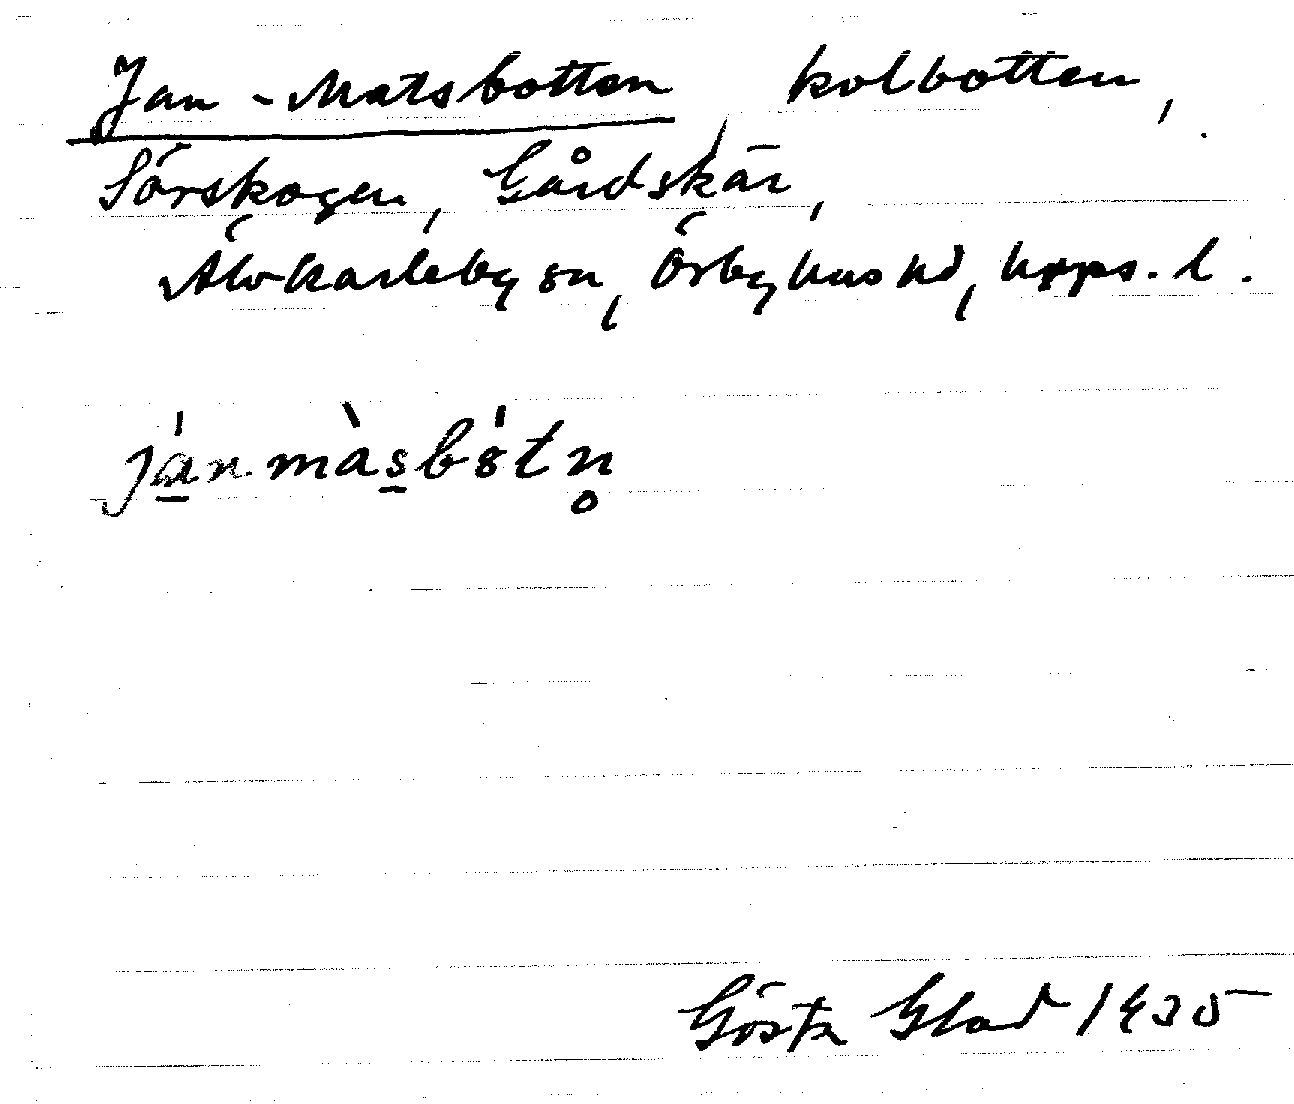 Jan-Matsbotten kolbotten,
Sörskogen, Gårdskär,
Älvkarleby sn, Örbyhus hd, Upps. l.
jánmàsbótn̥
Gösta Glad 1935